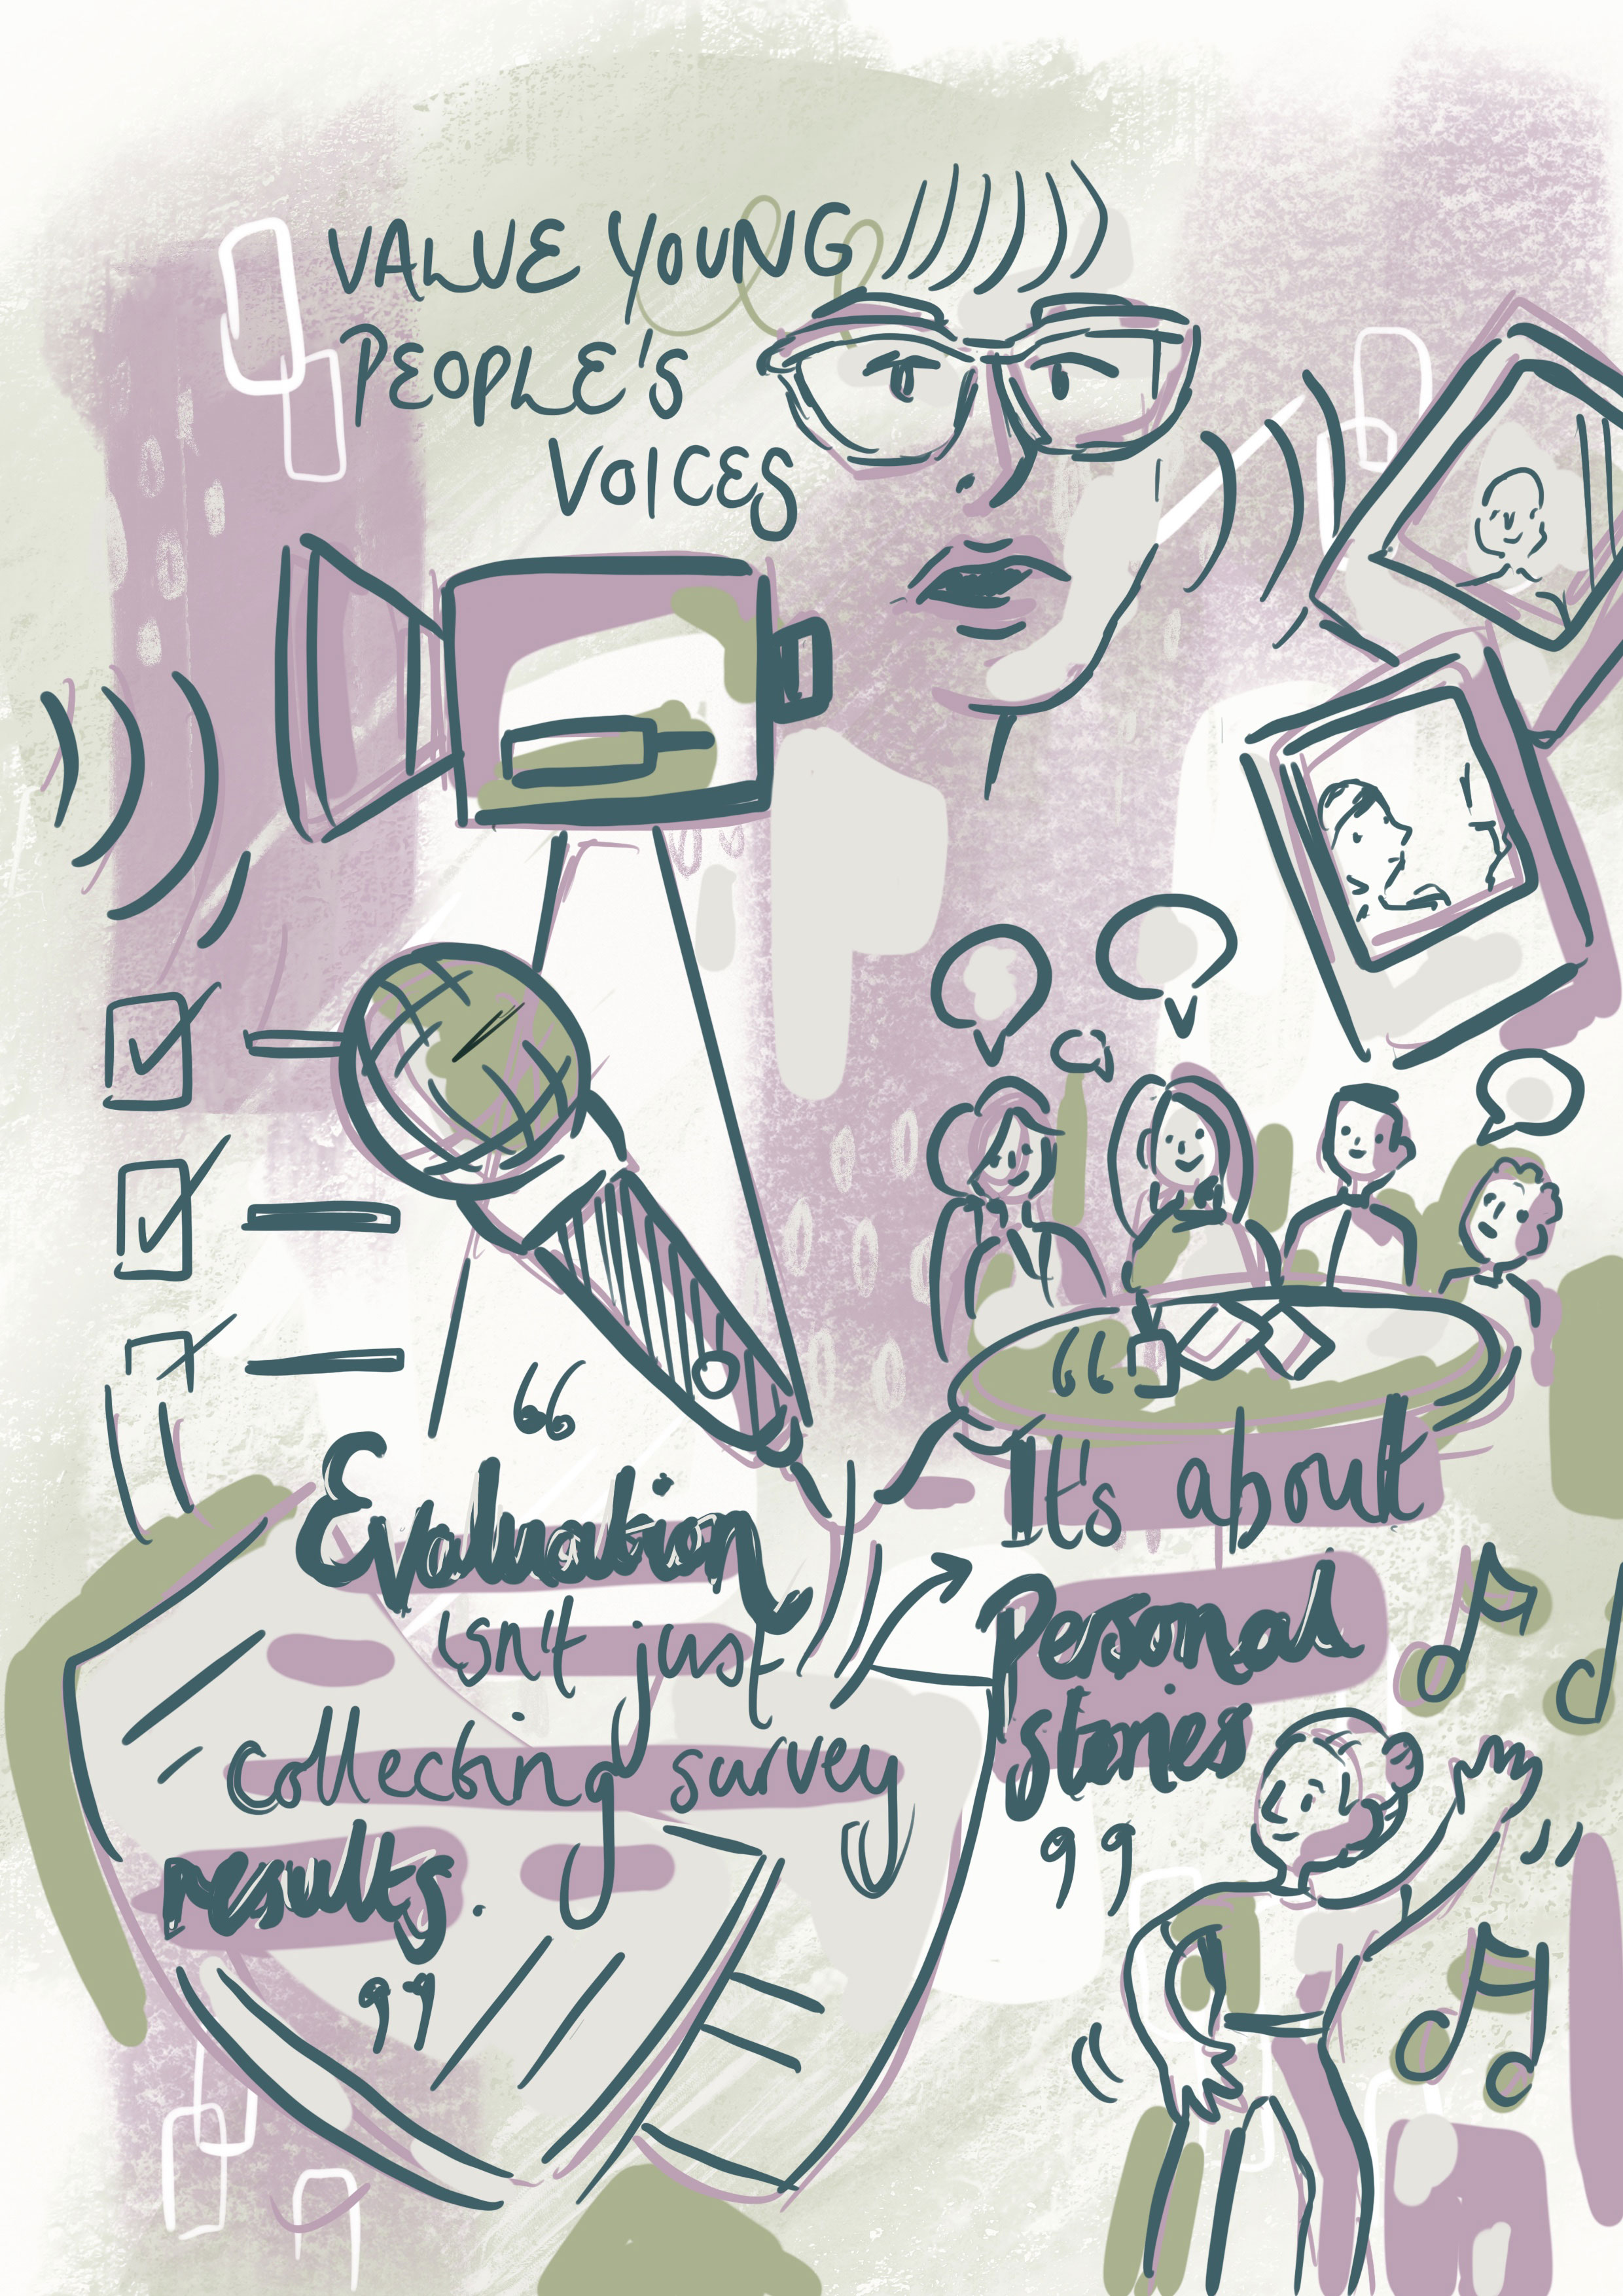 VALUE YOUNG
PEOPLE'S
VOICES
“
Evaluation
isn't just
collecting survey
results.
”
“
It's about
Personal
stories
”